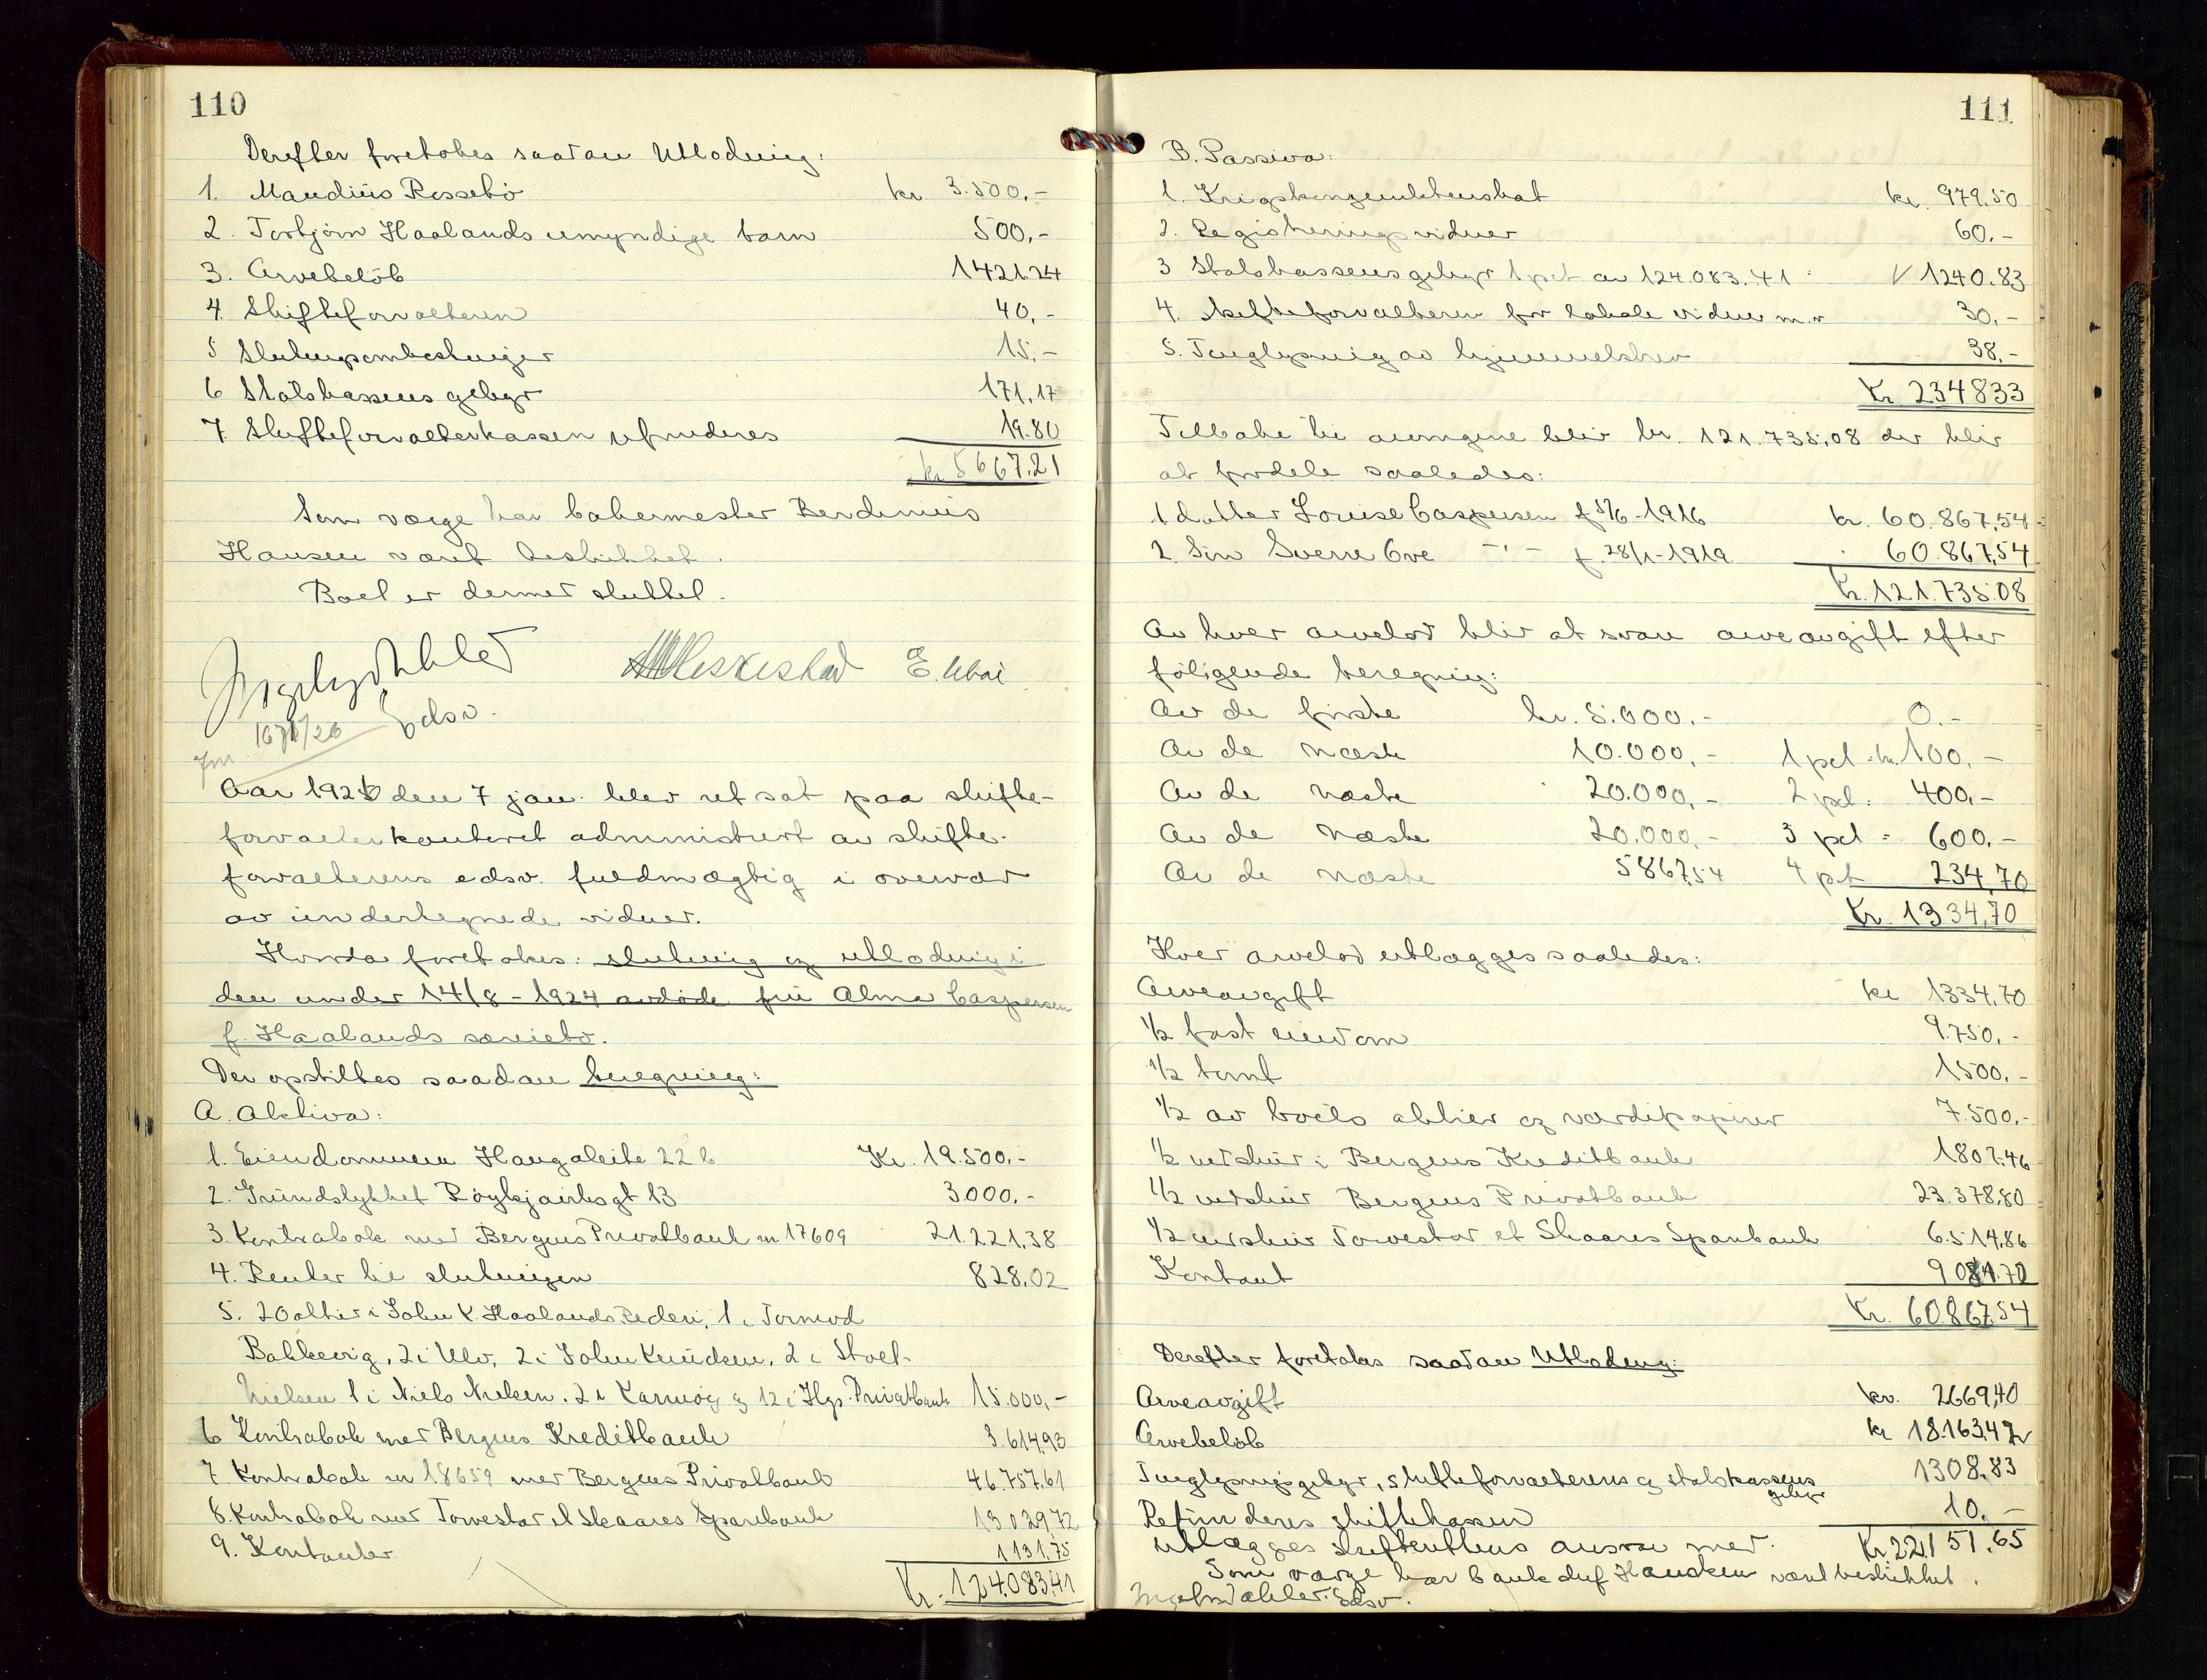 110
Derefter foretokes saadan Utlodning:
1. Maudius Rossebö kr 3.500,-
2. Torbjörn Haalands umyndige barn 500,-
3. Arvebelöb 1421.24
4. Skifteforvalteren 40,-
5 15,-
6 Statskassens gebyr 171,17
7. Skifteforvalterkassen refunderes 19.80
kr 5667.21
Som værge har bakermester Berdinius
Hansen vært beskikket.
Boet er dermed sluttet.
E. Uboe
Edsv.
Aar 1926 den 7 jan. blev ret sat paa skifte-
forvalterkontoret administrert av skifte-
forvalterens edsv. fuldmægtig i overvær
av undertegnede vidner.
Hvorda foretokes: slutning og utlodning i
den under 14/8 - 1924 avdöde fru Alma Caspersen
f. Haalands særiebo.
Der opstilles saadan beregning:
A. Aktiva:
1. Eiendommen Haugaleite 22 b Kr. 19.500.-
2. Grundstykket Röykjairksgt 13 3000.-
3. Kontrabok med Bergens Privatbank nr 17609 21.221,38
4. Renter til slutningen 828,02
5. 20 aktier i John K. Haalands Rederi, 1 i Tormod
Bakkevig, 2 i Ulv, 2 i John Knudsen, 2 i Stolt-
Nielsen 1 i Niels Nielsen. 2 i Karmöy og 12 i Hgs. Privatbank 15.000,-
6 Kontrabok med Bergens Kreditbank 3.614,93
7. Kontrabok nr 18659 med Bergens Privatbank 46.757.61
8. Kontrabok med Torvestad et Skaares Sparebank 13.029,72
9. Kontanter 1131.75
Kr. 124.083,41
111
B. Passiva:
1. Krigskonjunkturskat kr. 979.50
2. Registreringsvidner 60.-
3 Statskassens gebyr 1 pct av 124.083.41 1240.83
4. skifteforvalteren for lokale vidner m.v 30,-
5. Tinglysning av hjemmelsbrev 38,-
Kr 2348.33
Tilbake til arvingene blir kr. 121.735,08 der blir
at fordele saaledes:
1 datter Louise Caspersen f 5/6-1916 kr. 60.867,54
2. Sön Sverre Ove -"- f. 28/1-1919 60.867,54
Kr. 121.735.08
Av hver arvelod blir at svare arveavgift efter
föligende beregning:
Av de förste kr. 5.000.- 0.-
Av de næste 10.000,- 1 pct = kr. 100,-
Av de næste 20.000,- 2 pct = 400,-
Av de næste 20.000,- 3 pct = 600.-
Av de næste 5867,54 4 pct 234,70
Kr. 1334,70
Hver arvelod utlægges saaledes:
Arveavgift kr 1334,70
1/2 fast eiendom 9.750,-
1/2 tomt 1500,-
1/2 av boets aktier og værdipapirer 7.500,-
1/2 indskud i Bergens Kreditbank 1807,46
1/2 indskud Bergens Privatbank 23.378,80
1/2 indskud Torvestad et Skaares Sparebank 6.514,86
Kontant 9081.72
Kr. 60867,54
Derefter foretokes saadan Utlodning:
Arveavgift kr. 2669,40
Arvebelöb kr 18.163,42
Tinglysningsgebyr, skifteforvalterens og statskassens
gebyr 1308.83
Refunderes skiftekassen 10.-
Utlægges skifterettens ansvar med. Kr. 22151.65
Som værge har bankchef Hausken vært beskikket.
Edsv.